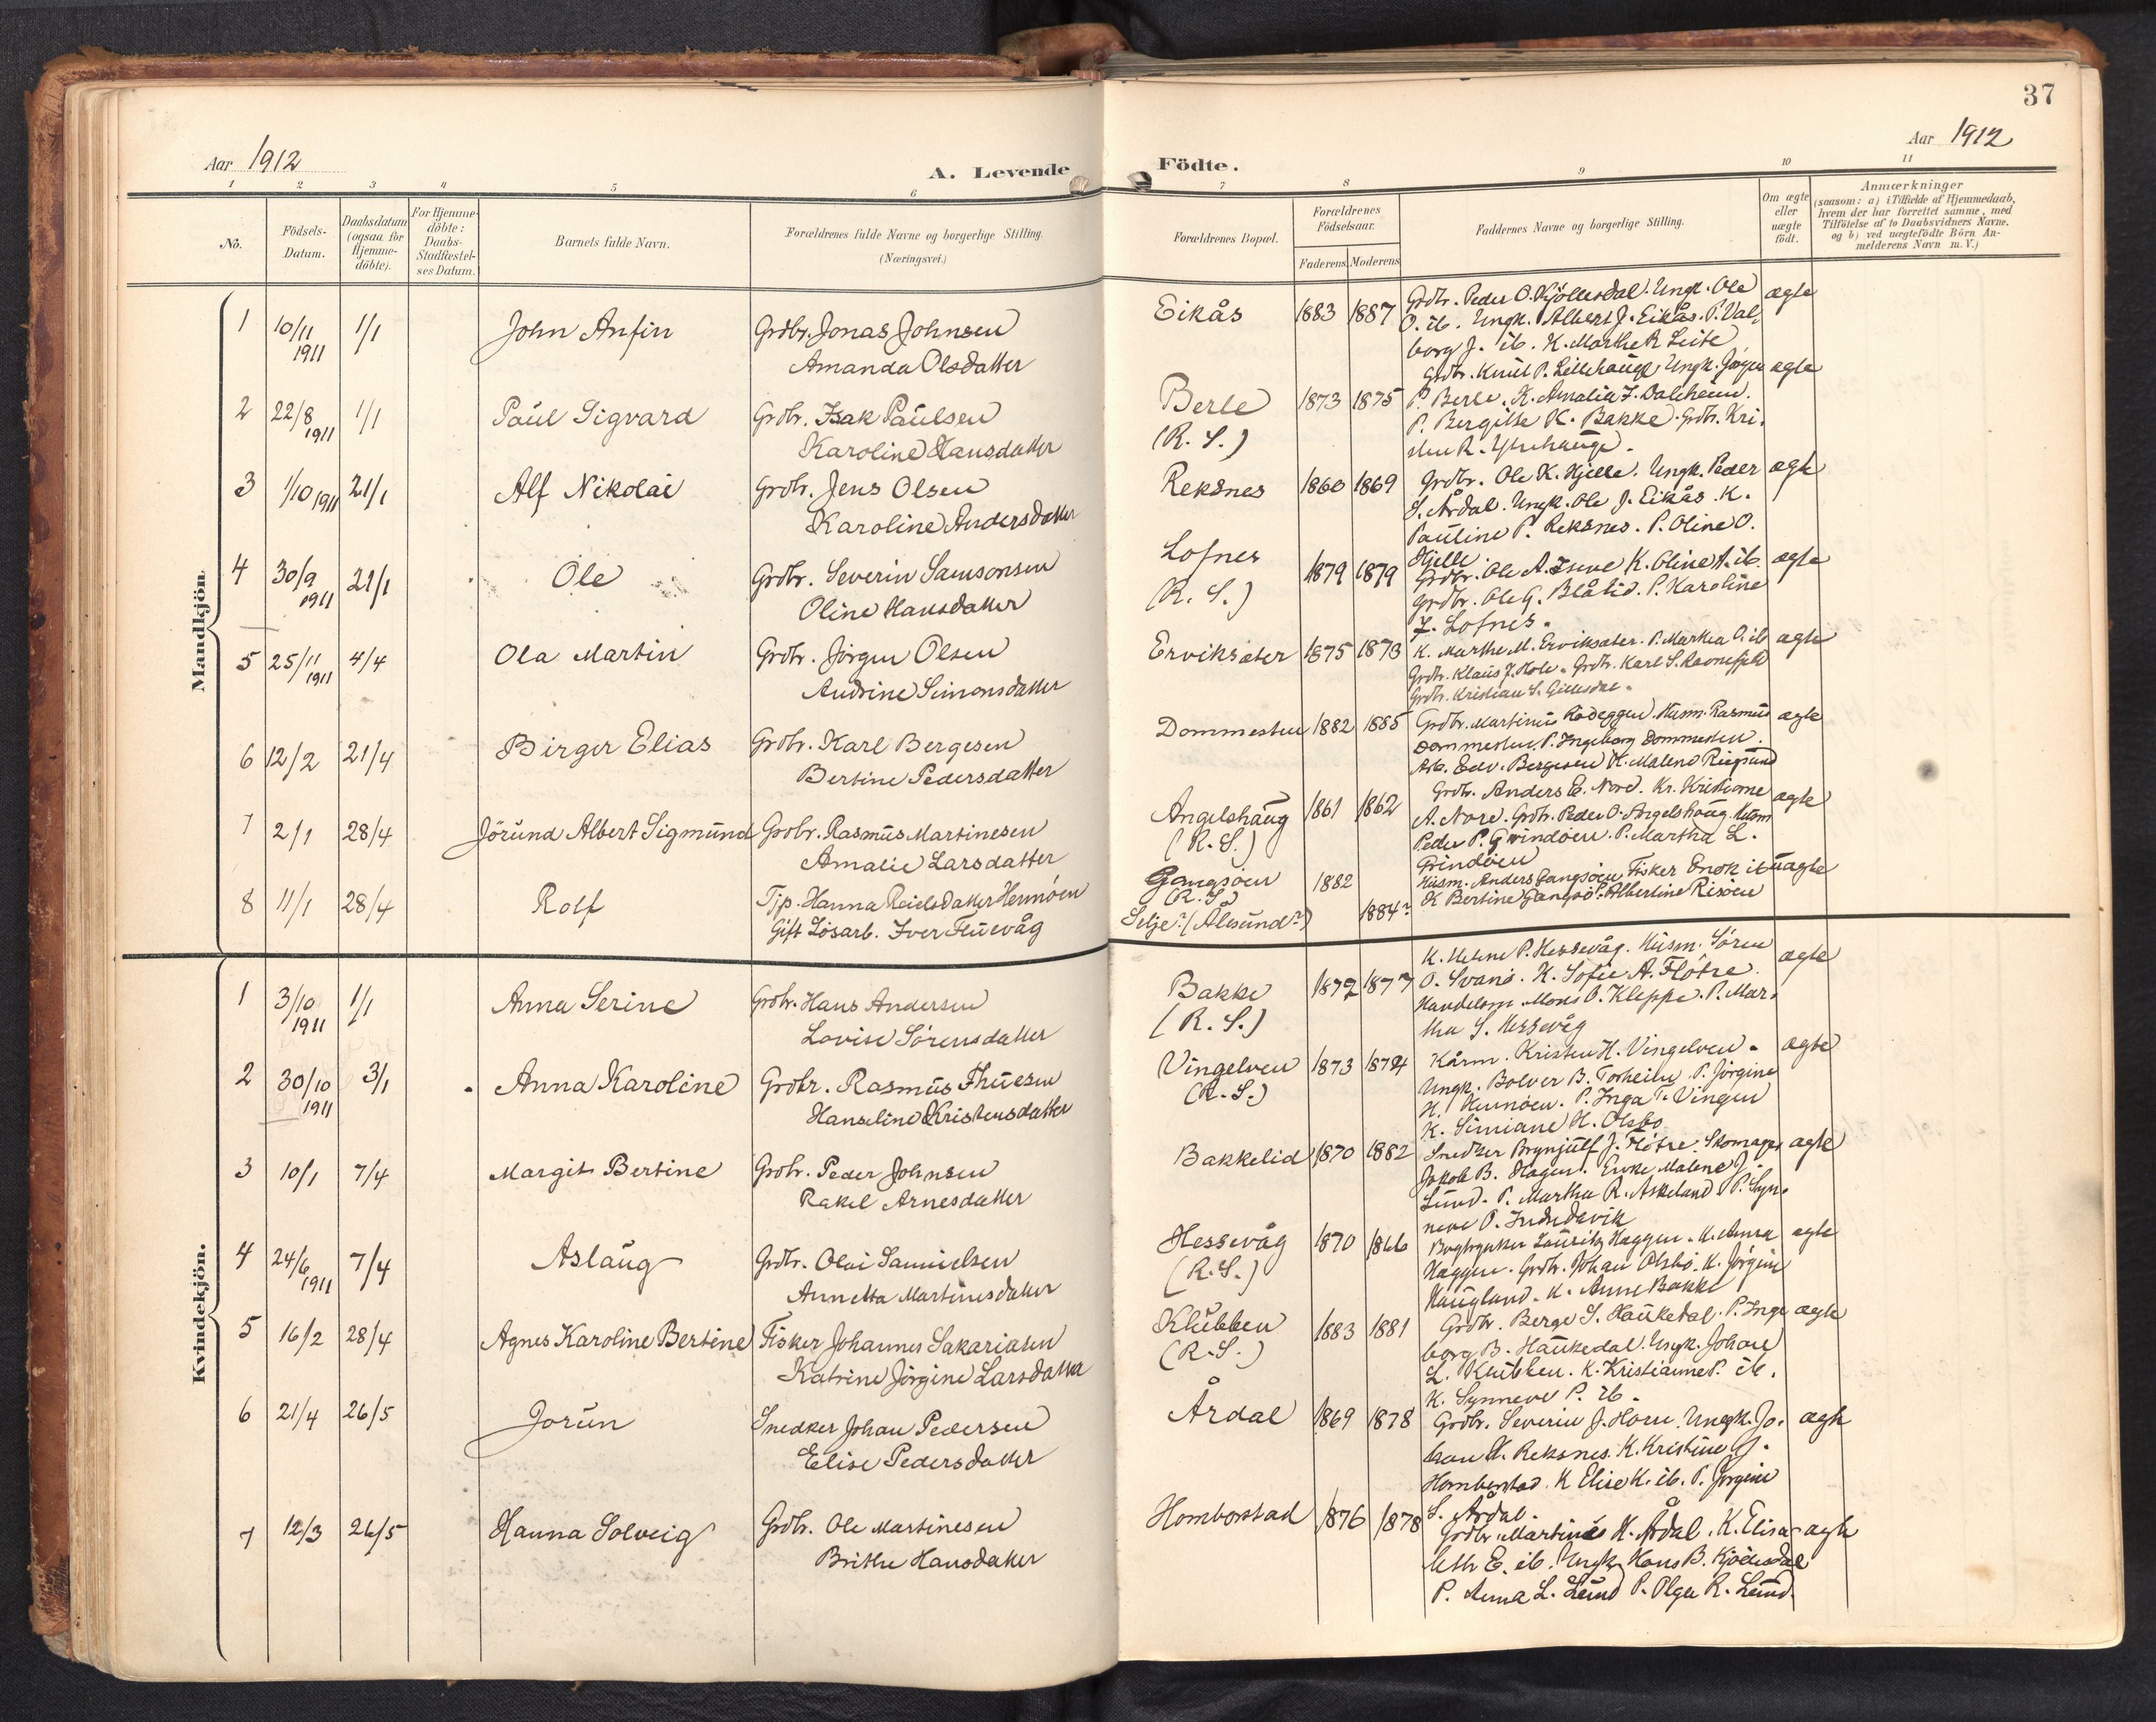 37
Aar 1912
Aar 1912
A. Levende Födte.
1 2 3 4 5 6 7 8 9 10 11
No.
Födsels-
Datum.
Daabsdatum
(ogsaa for
Hjemme-
döbte).
For Hjemme-
döbte:
Daabs-
Stadfæstel-
ses Datum.
Barnets fulde Navn.
Forældrenes fulde Navne og borgerlige Stilling.
(Næringsvei.)
Forældrenes Bopæl.
Forældrenes
Födselsaar.
Faderens. Moderens.
Faddernes Navne og borgerlige Stilling.
Om ægte
eller
uægte
födt.
Anmærkninger
(saasom: a) i Tilfælde af Hjemmedaab,
hvem der har forrettet samme, med
Tilföielse af to Daabsvidners Navne,
og b) ved uægtefödte Börn An-
melderens Navn m. V.)
Mandkjön.
1 10/11 1911 1/1 John Anfin Grdbr. Jonas Johnsen
Amanda Olsdatter
Eikås 1883 1887 ægte
Grdbr. Peder O. Kjöllesdal. Ungk. Ole
O. ib. Ungk. Albert J. Eikås. P. Val-
borg J. ib. K. Marthe R. Leite
2 22/8 1911 1/1 Paul Sigvard Grdbr. Isak Paulsen
Karoline Hansdatter
Berle (R. S.) 1873 1875 ægte
Grdbr. Knut P. Lillehauge Ungk. Jörgen
P. Berle. K. Amalia J. Dalheim.
P. Bergitte K. Bakke. Grdbr. Kri-
sten R. Ytrehauge.
3 1/10 1911 21/1 Alf Nikolai Grdbr. Jens Olsen
Karoline Andersdatter
Reksnes 1860 1869 ægte
Grdbr. Ole K. Hjelle. Ungk. Peder
S. Årdal. Ungk. Ole J. Eikås. K.
Pauline P. Reksnes. P. Oline O.
Hjelle.
4 30/9 1911 21/1 Ole Grdbr. Severin Samsonsen
Oline Hansdatter
Lofnes (R. S.) 1879 1879 ægte
Grdbr. Ole A. Isene K. Oline A. ib.
Grdbr. Ole G. Blålid. P. Karoline
J. Lofnes.
5 25/11 1911 4/4 Ola Martin Grdbr. Jörgen Olsen
Andrine Simonsdatter
Erviksæter 1875 1873 ægte
K. Marthe M. Erviksæter. P. Martha O. ib
Grdbr. Klaus J. Hole. Grdbr. Karl S. Ravnefjeld
Grdbr. Kristian S. Gillesdal.
6 12/2 21/4 Birger Elias Grdbr. Karl Bergesen
Bertine Pedersdatter
Dommesten 1882 1885 ægte
Grdbr. Martinus Rödeggen. Husm. Rasmus
Dommesten. P. Ingeborg Dommesten.
Arb. Edv. Bergesen K. Malene Risesund
7 2/1 28/4 Jörund Albert Sigmund Grdbr. Rasmus Martinesen
Amalie Larsdatter
Angelshaug (R. S.) 1861 1862 ægte
Grdbr. Anders E. Nore. Kr. Kristianne
A. Nore. Grdbr. Peder O. Angelshaug. Husm
Peder P. Grindöen. P. Martha L.
Grindöen
8 11/1 28/4 Rolf Tjp. Hanna Reielsdatter Hennöen
Gift Lösarb. Iver Fluevåg
Gangsöen (R. S.) 1882 uægte
Selje? (Ålesund?) 1884?
Husm. Anders Gangsöen Fisker Enok ib
K Bertine Gangsö. P. Albertine Risöen
Kvindekjön.
1 3/10 1911 1/1 Anna Serine Grdbr. Hans Andersen
Lovise Sörensdatter
Bakke (R. S.) 1872 1877 ægte
K. Helene P. Hessevåg. Husm. Sören
O. Svanö. K. Sofie A. Flötre.
Handelsm. Mons O. Kleppe. P. Mar-
tha S. Hessevåg
2 30/10 1911 3/1 Anna Karoline Grdbr. Rasmus Thuesen
Hanseline Kristensdatter
Vingelven (R. S.) 1873 1874 ægte
Kårm. Kristen H. Vingelven.
Ungk. Bolver B. Torheim. P. Jörgine
H. Hennöen. P. Inga T. Vingen
K. Simiane H. Olsbö
3 10/1 7/4 Margit Bertine Grdbr. Peder Johnsen
Rakel Arnesdatter
Bakkelid 1870 1882 ægte
Snedker Brynjulf J. Flötre. Skomager
Jakob B. Hagen. Enke Malene J.
Lund. P. Martha R. Askeland P. Syn-
neve P. Indredavik
4 24/6 1911 7/4 Aslaug Grdbr. Olai Samuelsen
Annetta Martinesdatter
Hessevåg (R. S.) 1870 1866 ægte
Bogtrykker Lauritz Haggen. K. Anna
Haggen. Grdbr. Johan Olsbö. K. Jörgine
Haugland. K. Anne Bakke
5 16/2 28/4 Agnes Karoline Bertine Fisker Johannes Sakariasen
Katrine Jörgine Larsdatter
Klubben (R. S.) 1883 1881 ægte
Grdbr. Berge S. Haukedal. P. Inge-
borg B. Haukedal. Ungk. Johan
L. Klubben. K. Kristianne P. ib.
K. Synneve P. ib.
6 21/4 26/5 Jorun Snedker Johan Pedersen
Elise Pedersdatter
Årdal 1869 1878 ægte
Grdbr. Severin J. Horn. Ungk. Jo-
han H. Reksnes. K. Kristine J.
Hombostad. K Elise K. ib. P. Jörgine
S. Årdal.
7 12/3 26/5 Hanna Solveig Grdbr. Ole Martinesen
Brithe Hansdatter
Homborstad 1876 1878 ægte
Grdbr. Martines H. Årdal. K. Elisa-
beth E. ib. Ungk. Hans B. Kjöllesdal
P. Anna L. Leund P. Olga R. Leund.